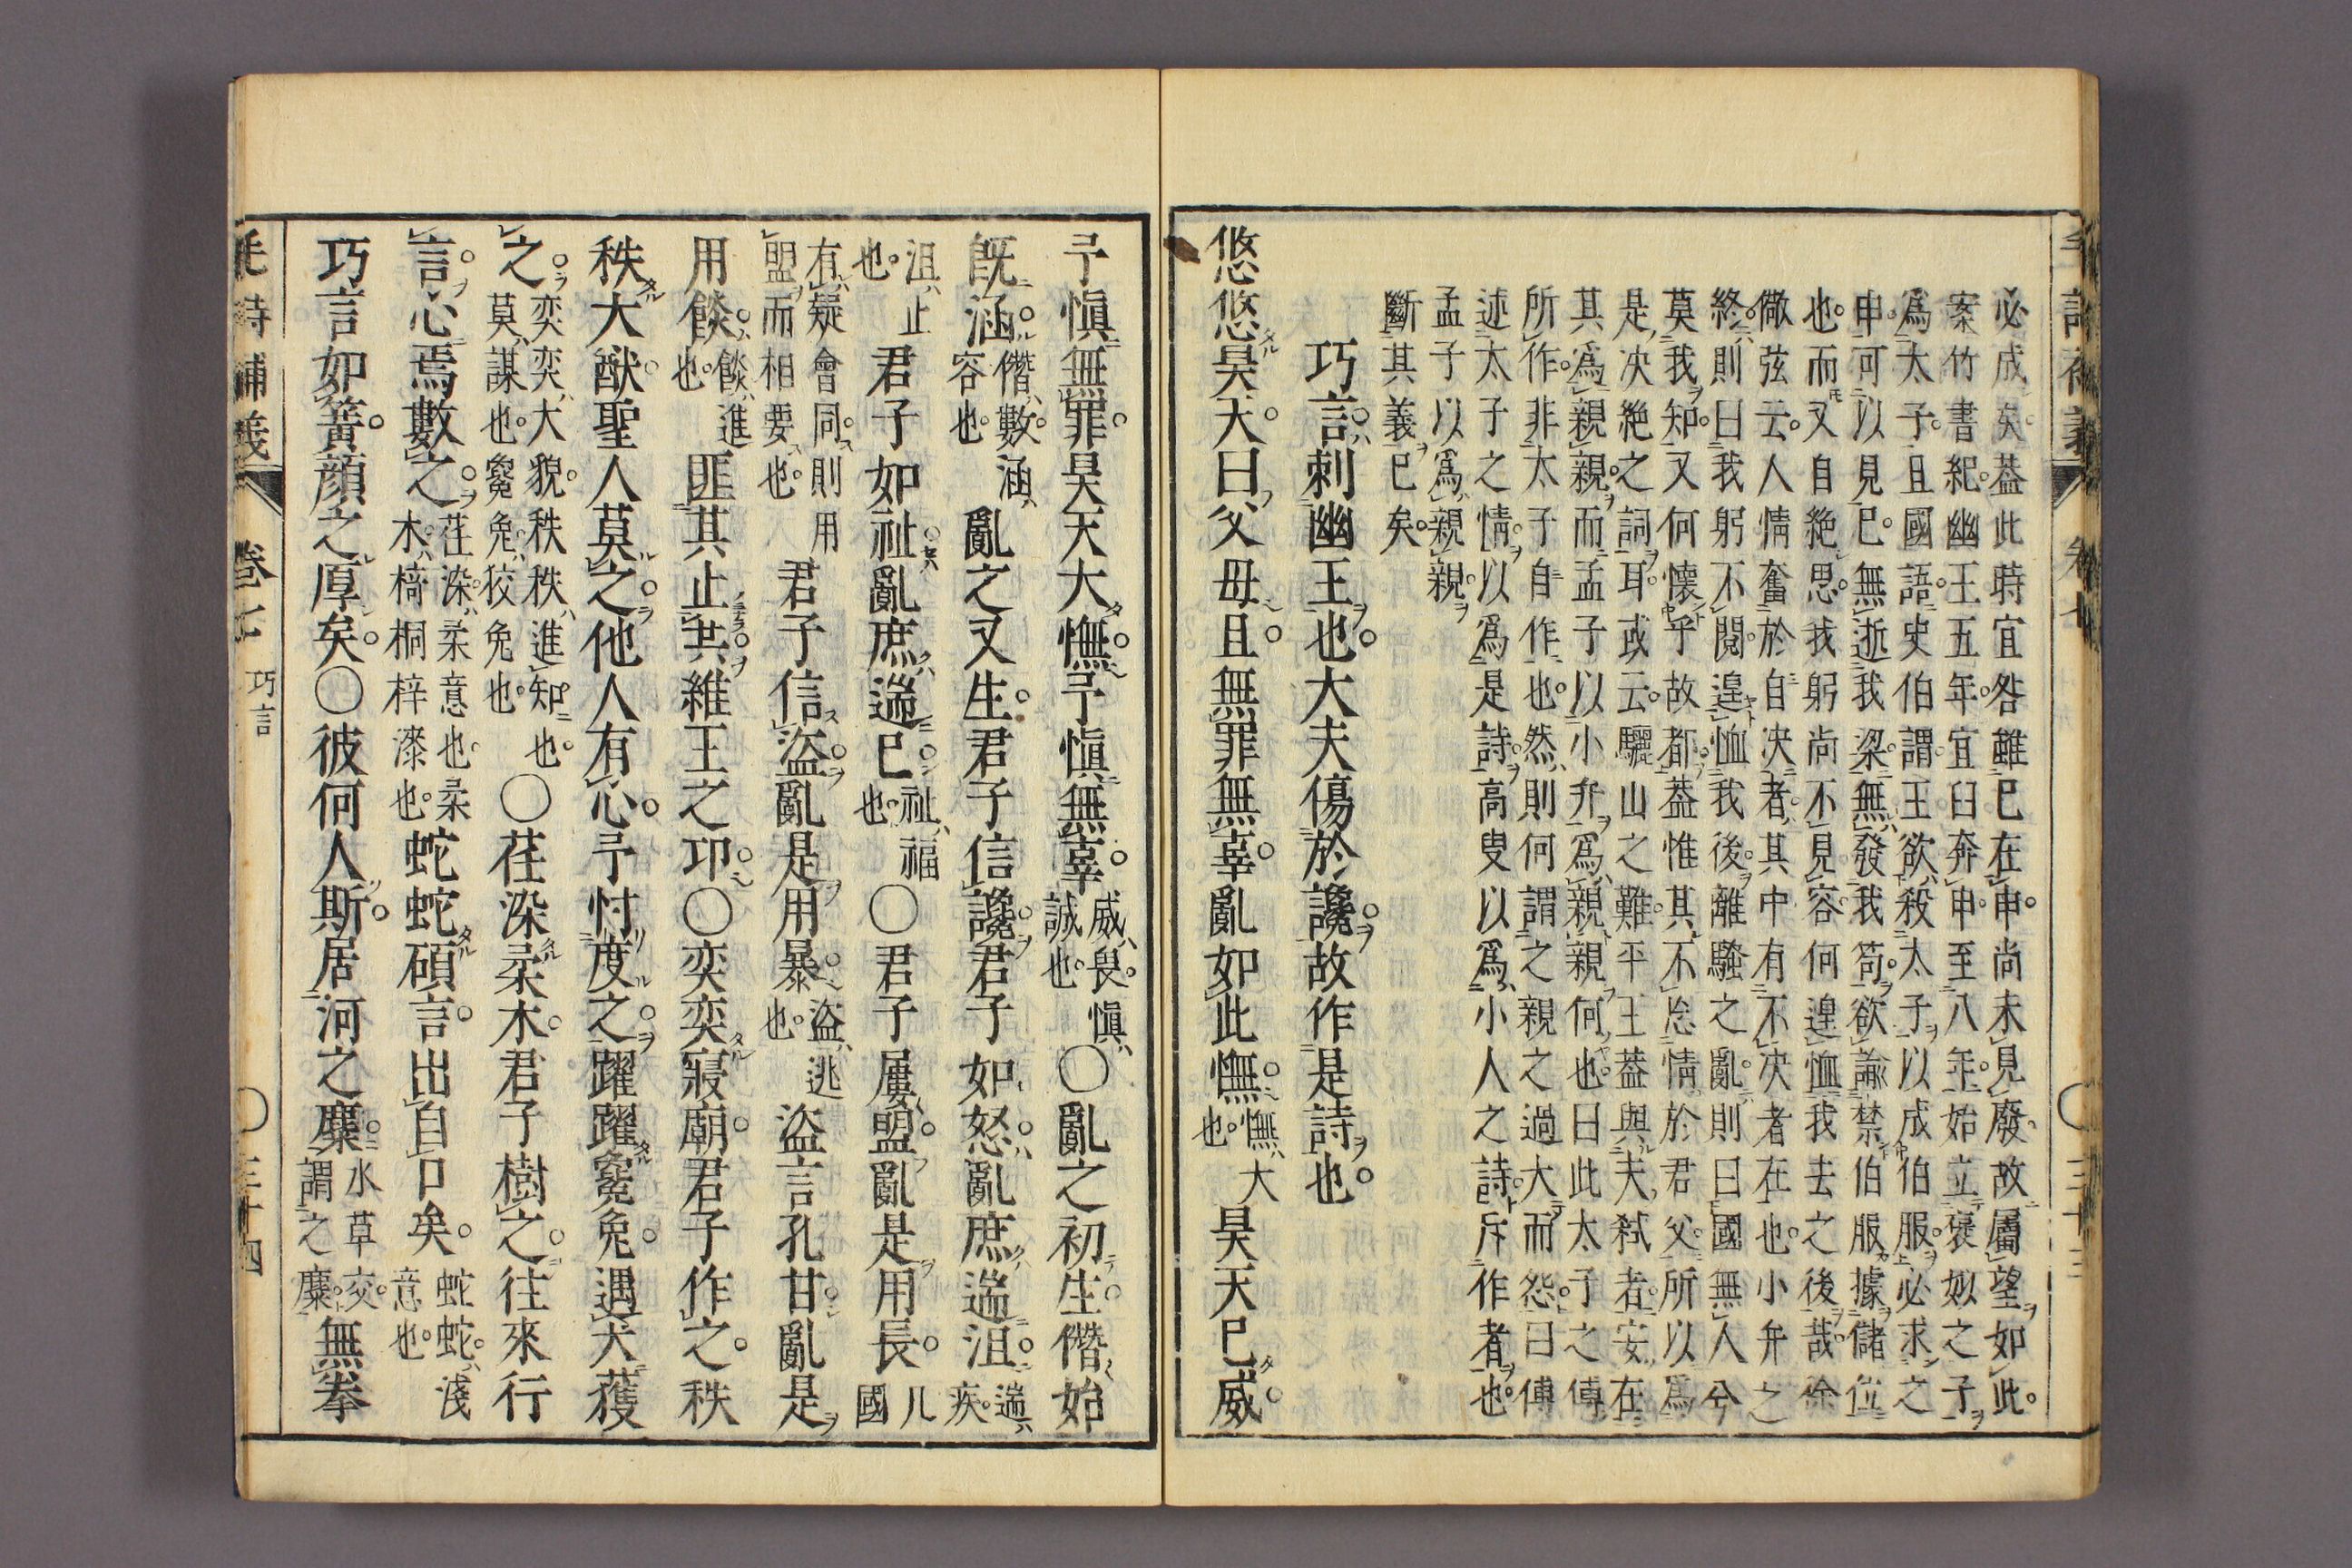 必成矣葢此時宜咎離已在申尚未見廢故屬望如此
案竹書紀幽王五年宜臼奔申至八年始立褒姒之子
爲太子且國語史伯謂王欲殺太子以成伯服必求之
申可以見已無逝我梁無發我笱欲諭禁伯服據儲位
也而又自絶思我躬尚不見容何遑恤我去之後哉徐
儆弦云人情奮於自决者其中有不决者在也小弁之
終則曰我躬不閱遑恤我後離騷之亂則曰國無人兮
莫我知又何懷乎故都葢惟其不忘情於君父所以爲
是决絶之詞耳或云驪山之難平王葢與夫弑者安在
其爲親親而孟子以小弁爲親親何也曰此太子之傅
所作非太子自作也然則何謂之親之過大而怨曰傅
述太子之情以爲是詩高叟以爲小人之詩斥作者也
孟子以爲親親
斷其義已矣
巧言刺幽王也大夫傷於讒故作是詩也
悠悠昊天曰父母且無罪無辜亂如此憮憮大也昊天已威
予愼無罪昊天大憮予愼無辜威畏愼誠也〇亂之初生僭始
旣涵僭數涵容也亂之又生君子信讒君子如怒亂庶遄沮遄疾
沮止也君子如祉亂庶遄已祉福也〇君子屢盟亂是用長凡國
有疑會同則用盟而相要也君子信盜亂是用暴盜逃也盜言孔甘亂是
用餤餤進也匪其止共維王之卭〇奕奕寢廟君子作之秩
秩大猷聖人莫之他人有心予忖度之躍躍毚兔遇犬獲
之奕奕大貌秩秩進知也莫謀也毚兔狡兔也〇荏染柔木君子樹之往來行
言心焉數之荏染柔意也柔木椅桐梓漆也蛇蛇碩言出自口矣蛇蛇淺意也
巧言如簧顔之厚矣〇彼何人斯居河之麋水草交謂之麋無拳
毛詩補義 卷七 巧言 〇三十四